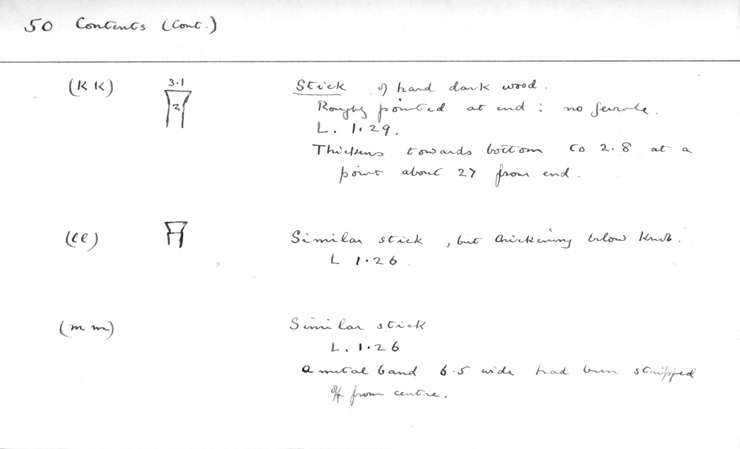 50 Contents (Cont.)
(KK) 3.1 Stick of hard dark wood.
2 Roughly pointed at end : no ferrule.
L. 1.29.
Thickens towards bottom to 2.8 at a
point about 27 from end.
(ll) Similar stick, but thickening below knob.
L 1.26.
(mm) Similar stick
L. 1.26
A metal band 6.5 wide had been stripped
off from centre.